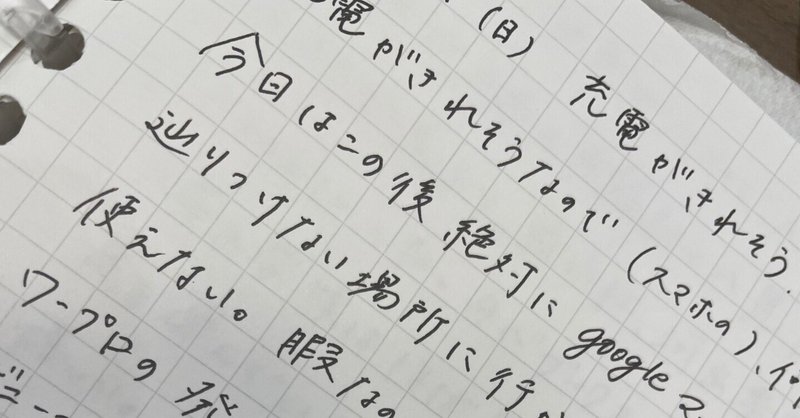 (日) 充電がきれそう.
電がきれそうなので (スマホの)、
今日はこの後、絶対に google マ
辿りつけない場所に行
使えない。暇なの
ワープロの発